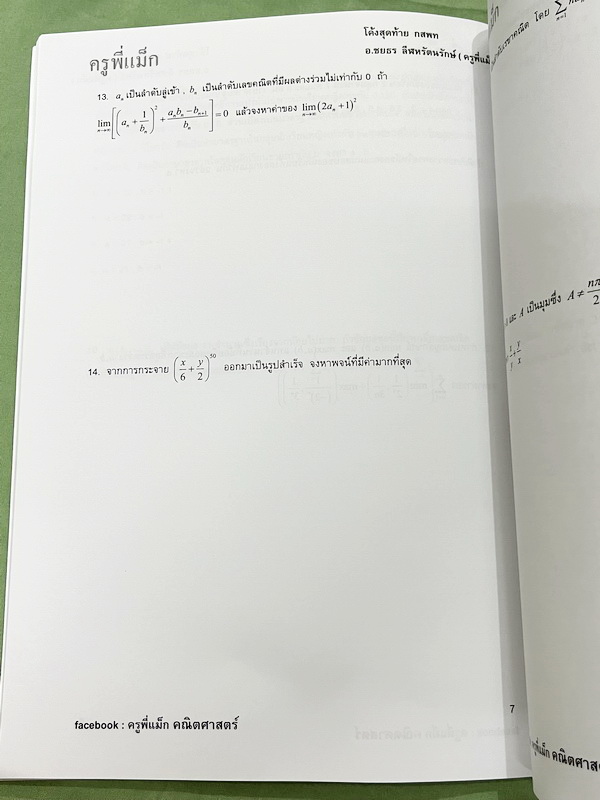 ครูพี่แม็ก
โค้งสุดท้าย กสพท
อ.ชยธร ลีฬหรัตนรักษ์ ( ครูพี่แม็
13. aₙ เป็นลำดับลู่เข้า , bₙ เป็นลำดับเลขคณิตที่มีผลต่างร่วมไม่เท่ากับ 0 ถ้า
lim n→∞ [(aₙ + 1/bₙ)² + (aₙbₙ − bₙ₊₁)/bₙ] = 0 แล้วจงหาค่าของ lim n→∞ (2aₙ + 1)²
14. จากการกระจาย (x/6 + y/2)⁵⁰ ออกมาเป็นรูปสำเร็จ จงหาพจน์ที่มีค่ามากที่สุด
facebook : ครูพี่แม็ก คณิตศาสตร์
7
โดย
และ A เป็นมุมซึ่ง A ≠ nπ/2
x/y + y/x
ครูพี่แม็ก คณิตศาส